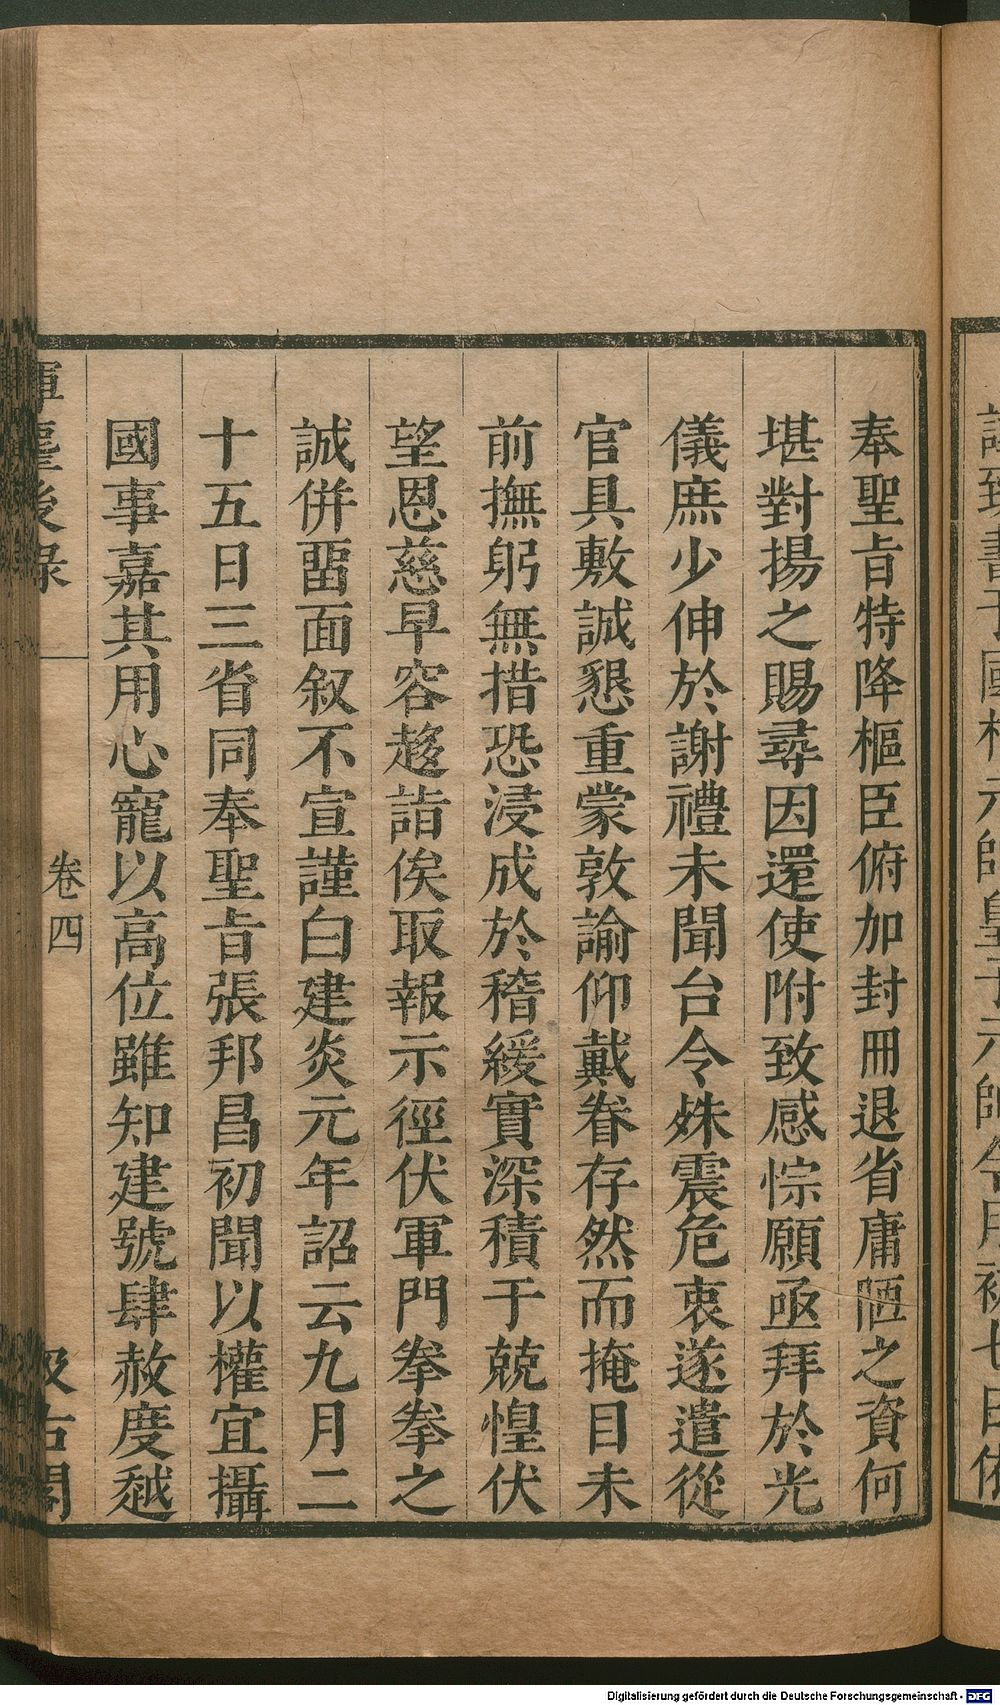 奉聖旨特降樞臣俯加封冊退省庸陋之資何
堪對揚之賜尋因還使附致感悰願亟拜於光
儀庶少伸於謝禮未聞台令姝震危衷遂遣從
官具敷誠懇重蒙敦諭仰戴眷存然而掩目未
前撫躬無措恐浸成於稽緩實深積于兢惶伏
望恩慈早容趍詣俟取報示徑伏軍門拳拳之
誠併畱面叙不宣謹白建炎元年詔云九月二
十五日三省同奉聖旨張邦昌初聞以權宜攝
國事嘉其用心寵以高位雖知建號肆赦度越
揮麈後录
卷四
汲古閣
Digitalisierung gefördert durch die Deutsche Forschungsgemeinschaft - DFG